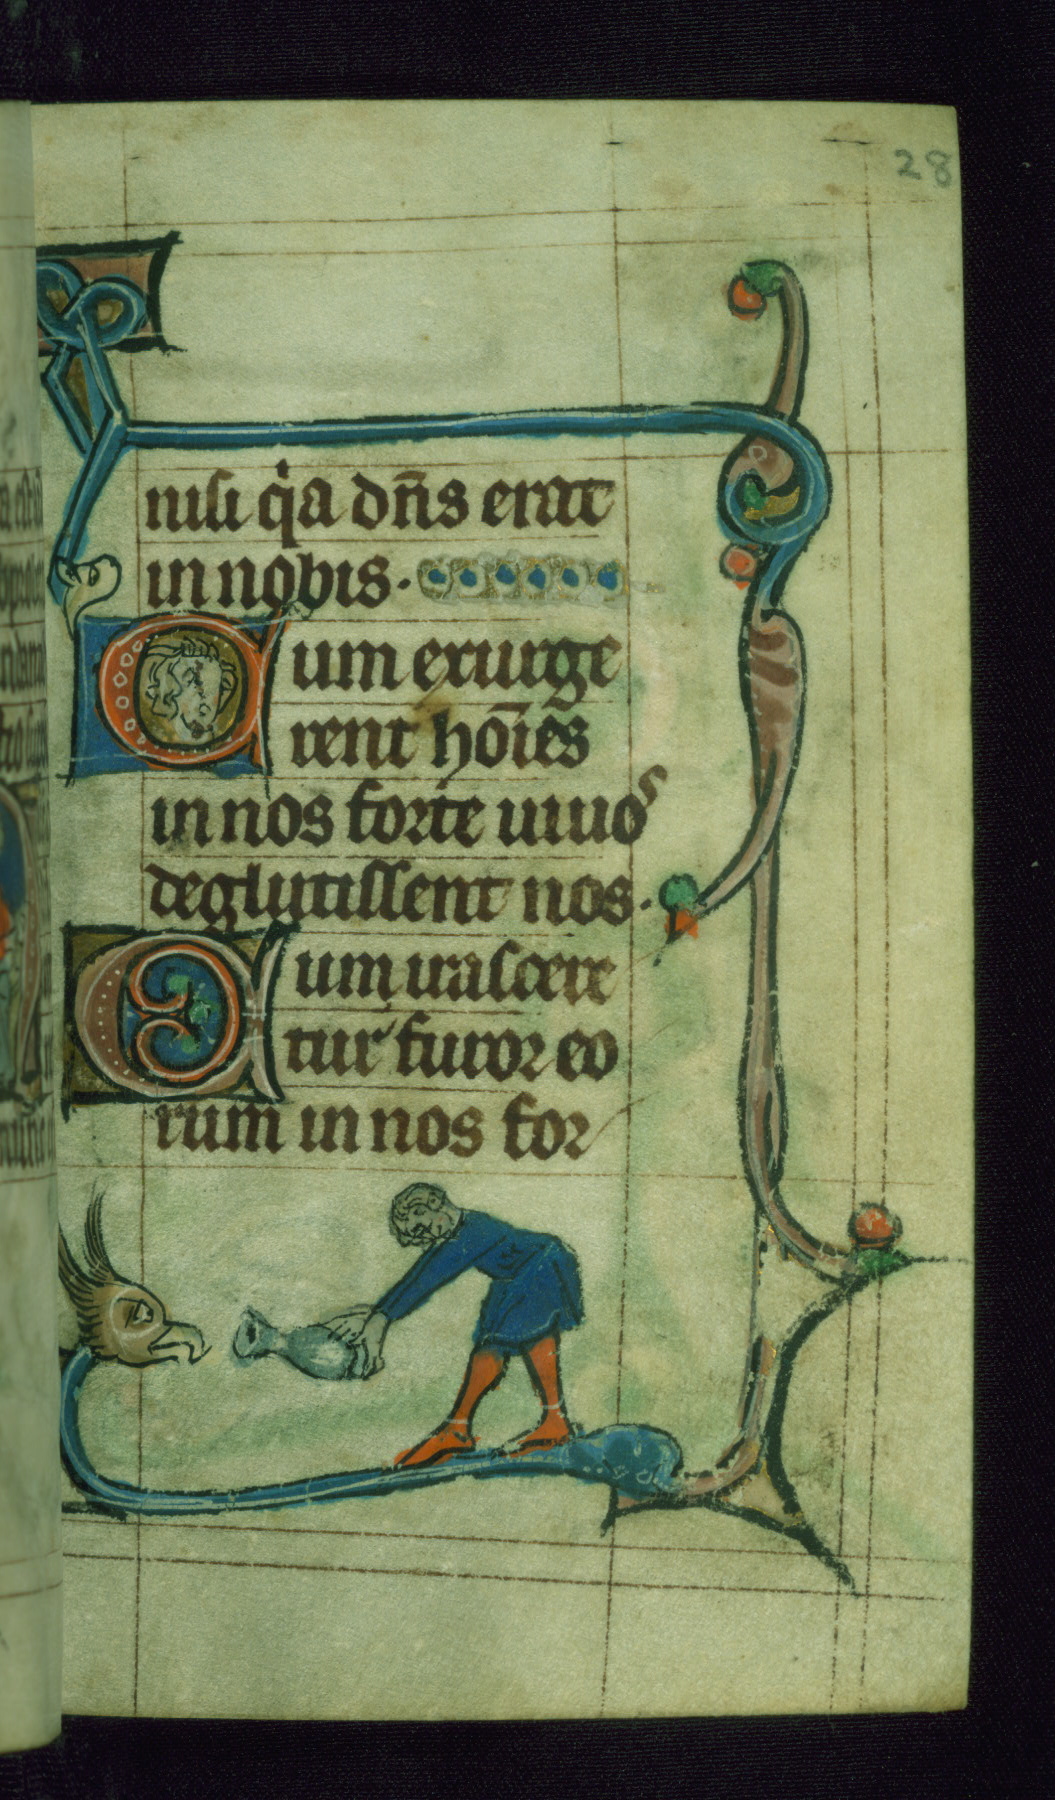 28
nisi qia dn̄s erat
in nobis.
Cum exurge
rent hōies
in nos forte uiuos
deglutissent nos.
Cum irascere
tur furor eo
rum in nos for